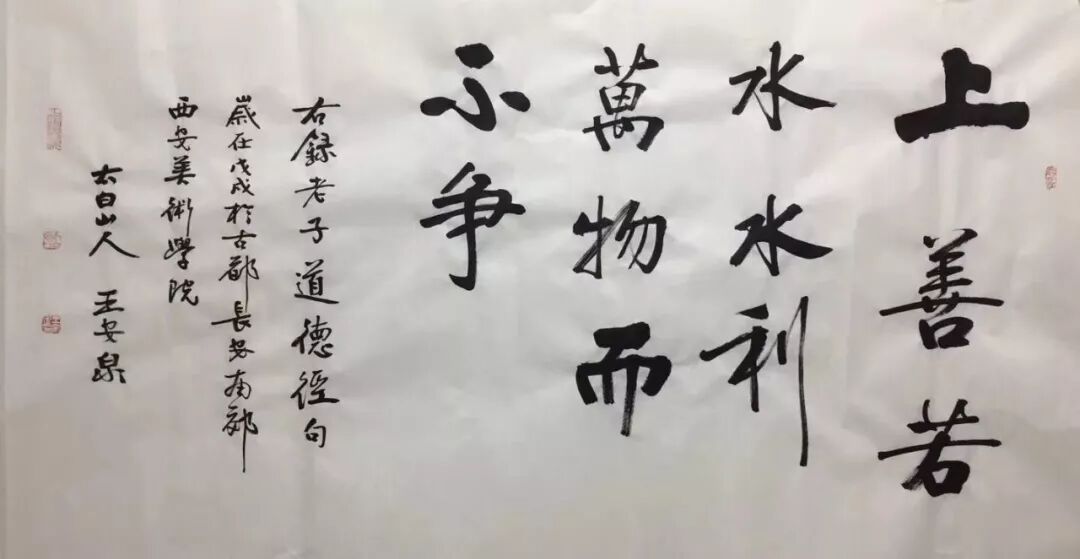 上善若
水水利
萬物而
不争
右録老子道德徑句
嵗在戊戌於古都長安南郊
西安美術學院
太白山人 王安泉